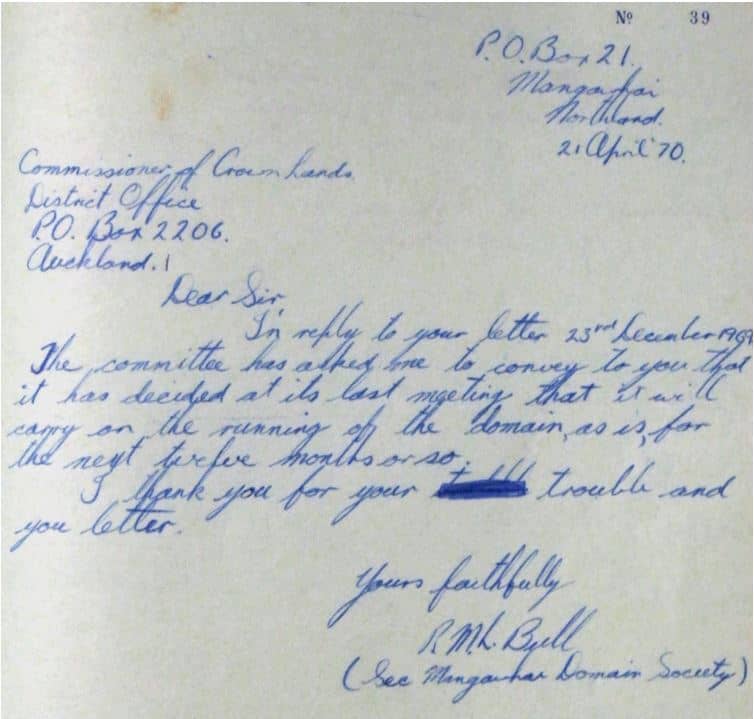 Nº 39
P.O. Box 21.
Mangawhai
Northland.
21 April '70.
Commissioner of Crown Lands.
District Office
P.O. Box 2206.
Auckland. 1
Dear Sir
In reply to your letter 23rd December 1969
The committee has asked me to convey to you that
it has decided at its last meeting that it will
carry on the running of the domain, as is, for
the next twelve months or so.
I thank you for your trouble and
you letter.
Yours faithfully
R. M. L.
(Sec Mangawhai Domain Society)